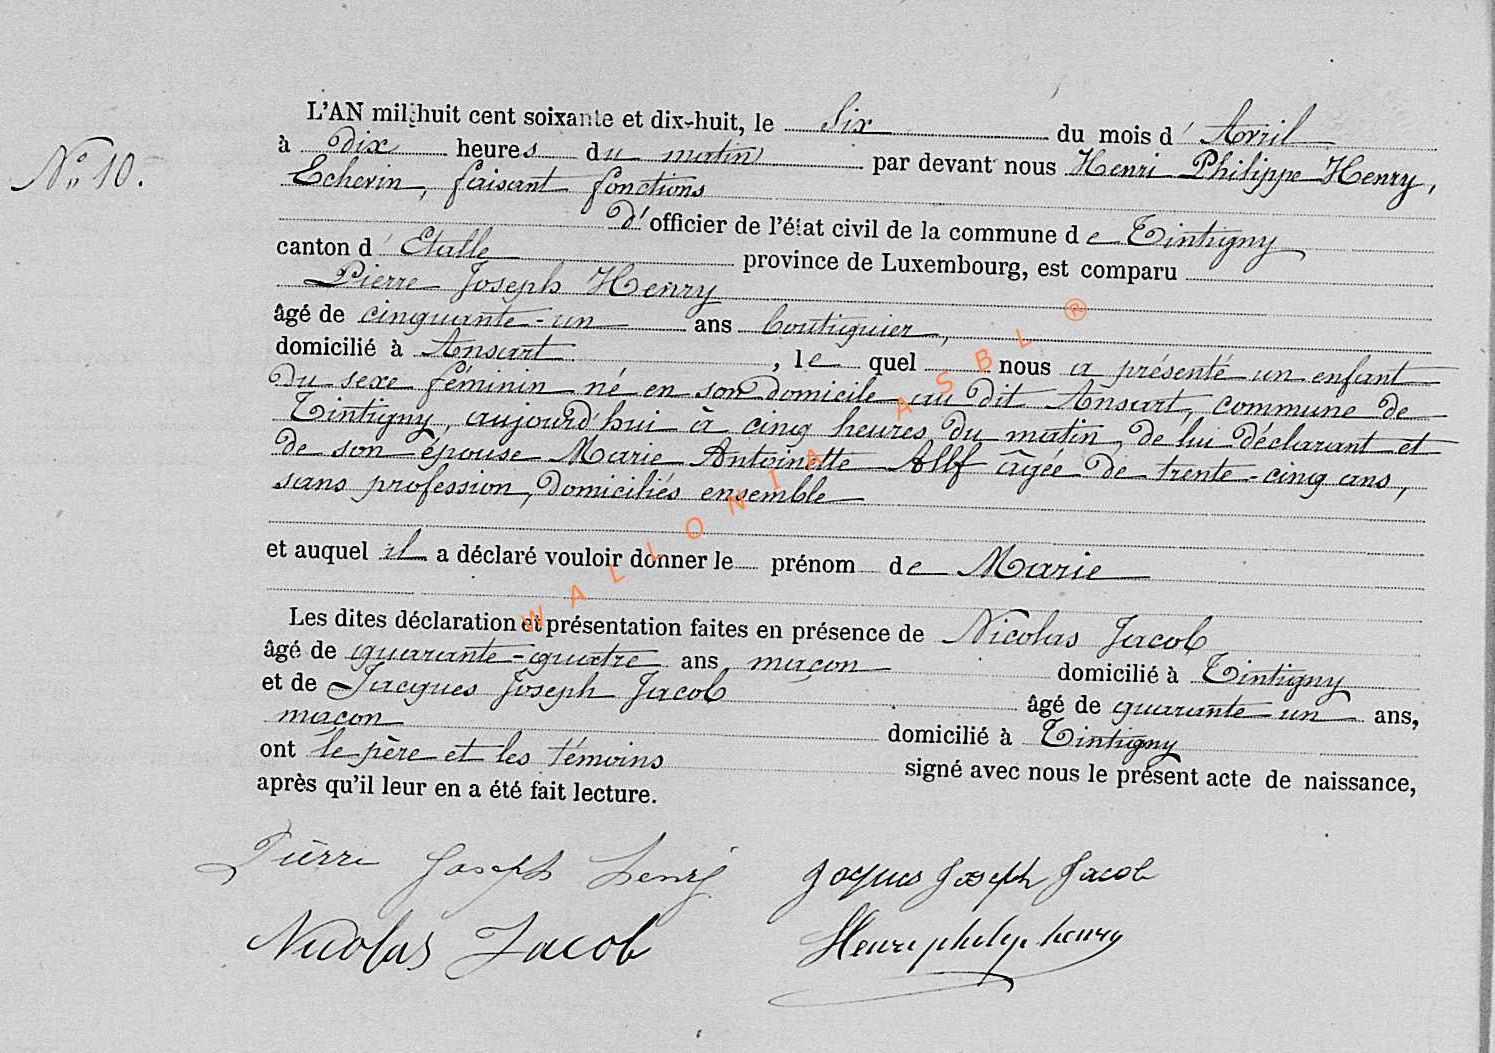 L'AN mil huit cent soixante et dix-huit, le Six du mois d'Avril
N° 10.
à dix heures du matin par devant nous Henri Philippe Henry,
Echevin, faisant fonctions
d'officier de l'état civil de la commune de Tintigny
canton d'Etalle province de Luxembourg, est comparu
Pierre Joseph Henry
âgé de cinquante-un ans boutiquier,
domicilié à Ansart, lequel nous a présenté un enfant
du sexe féminin né en son domicile au dit Ansart, commune de
Tintigny, aujourd'hui à cinq heures du matin, de lui déclarant et
de son épouse Marie Antoinette Allf âgée de trente-cinq ans,
sans profession, domiciliés ensemble
et auquel il a déclaré vouloir donner le prénom de Marie
Les dites déclaration et présentation faites en présence de Nicolas Jacob
âgé de quarante-quatre ans, maçon domicilié à Tintigny
et de Jacques Joseph Jacob âgé de quarante-un ans,
maçon domicilié à Tintigny
ont le père et les témoins signé avec nous le présent acte de naissance,
après qu'il leur en a été fait lecture.
Pierre Joseph henry
Jacques Joseph Jacob
Nicolas Jacob
Henri philipe henry
WALLONIA ASBL ®